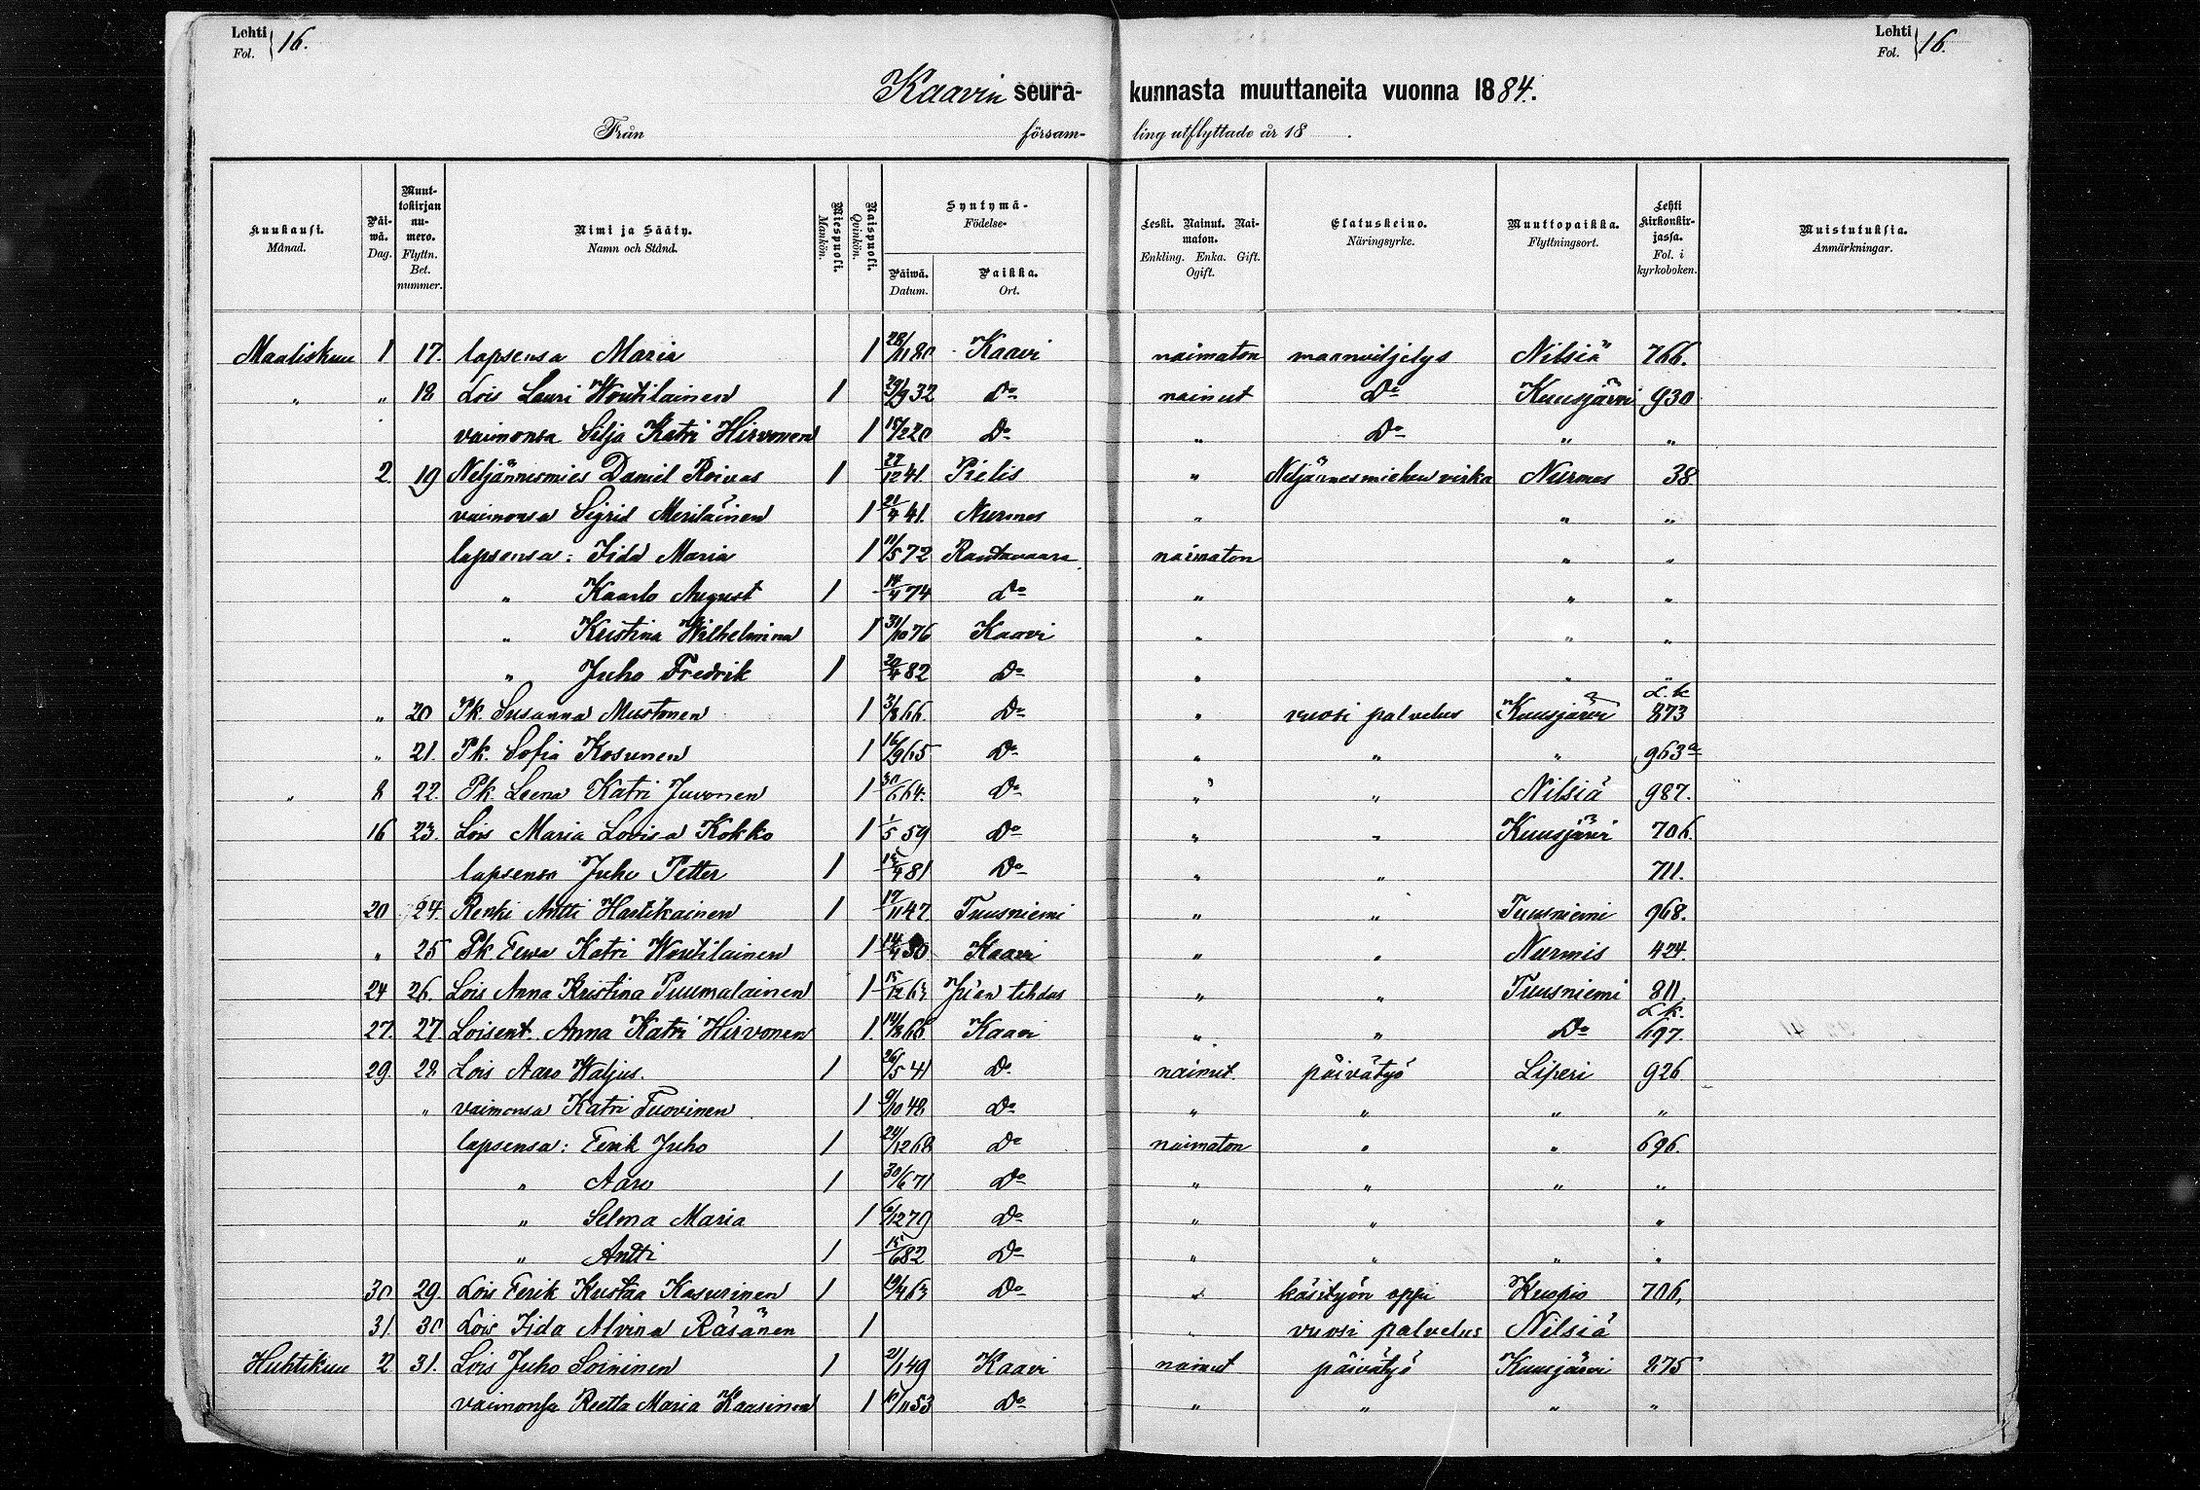 Lehti Fol. 16.
Lehti Fol. 16.
Kaavin seura- kunnasta muuttaneita vuonna 1884.
Från församling utflyttade år 18 .
Kuukausi. Månad. Päivä. Dag. Muuttokirjan numero. Flyttn. Bet. nummer. Nimi ja Sääty. Namn och Stånd. Miespuoli. Mankön. Naispuoli. Qvinkön. Syntymä- Födelse- Päivä. Datum. Paikka. Ort. Leski. Nainut. Naimaton. Enkling. Enka. Gift. Ogift. Elatuskeino. Näringsyrke. Muuttopaikka. Flyttningsort. Lehti kirkonkirjassa. Fol. i kyrkoboken. Muistutuksia. Anmärkningar.
Maaliskuu 1 17. lapsensa Maria 1 28/11 80 Kaavi naimaton maanviljelys Nilsiä 766.
" " 18 Lois Lauri Woutilainen 1 29/9 32 Do nainut Do Kuusjärvi 930
vaimonsa Silja Katri Hirvonen 1 15/2 20 Do " Do " "
2. 19 Neljännesmies Daniel Roivas 1 27/12 41. Pielis " Neljännesmiehen virka Nurmes 38
vaimonsa Sigrid Meriläinen 1 21/4 41. Nurmes " " "
lapsensa: Iida Maria 1 11/5 72 Rautavaara naimaton " "
" Kaarlo August 1 14/4 74 Do " " "
" Kristina Wilhelmina 1 31/10 76 Kaavi " " "
" Juho Fredrik 1 20/4 82 Do " " "
" 20 Pk. Susanna Mustonen 1 3/8 66. Do " vuosi palvelus Kuusjärvi L.k. 873
" 21. Pk. Sofia Kosunen 1 16/9 65 Do " " " 963a
" 8 22. Pk Leena Katri Juvonen 1 30/6 64. Do " " Nilsiä 987.
16 23. Lois Maria Lovisa Kokko 1 1/5 59 Do " " Kuusjärvi 706.
lapsensa Juho Petter 1 81 Do " " 711.
20 24. Renki Antti Hartikainen 1 17/11 47. Tuusniemi " " Tuusniemi 968.
" 25 Pk. Eewa Katri Woutilainen 1 Kaavi " " Nurmis 424.
24 26. Lois Anna Kristina Puumalainen 1 15/12 63 Jy:an tehdas " " Tuusniemi 811.
27. 27. Loisent. Anna Katri Hirvonen 1. 14/8 66. Kaavi " " Do L.k. 697.
29. 28 Lois Aaro Waljus. 1 26/5 41 Do nainut päivätyö Liperi 926
" vaimonsa Katri Tuovinen 1 9/10 48. Do " " " "
lapsensa: Eerik Juho 1 24/12 68 Do naimaton " " 696.
" Aaro 1 30/6 71 Do " " " "
" Selma Maria 1 6/12 79 Do " " "
" Antti 1 15/6 82 Do " " " "
30 29. Lois Eerik Kustaa Kasurinen 1 19/4 63 Do " käsityön oppi Kuopio 706,
31. 30 Lois Iida Alvina Räsänen 1 " vuosi palvelus Nilsiä
Huhtikuu 2 31. Lois Juho Soininen 1 21/1 49 Kaavi nainut päivätyö Kuusjärvi 875
vaimonsa Reetta Maria Kaasinen 1 53 Do " " " "